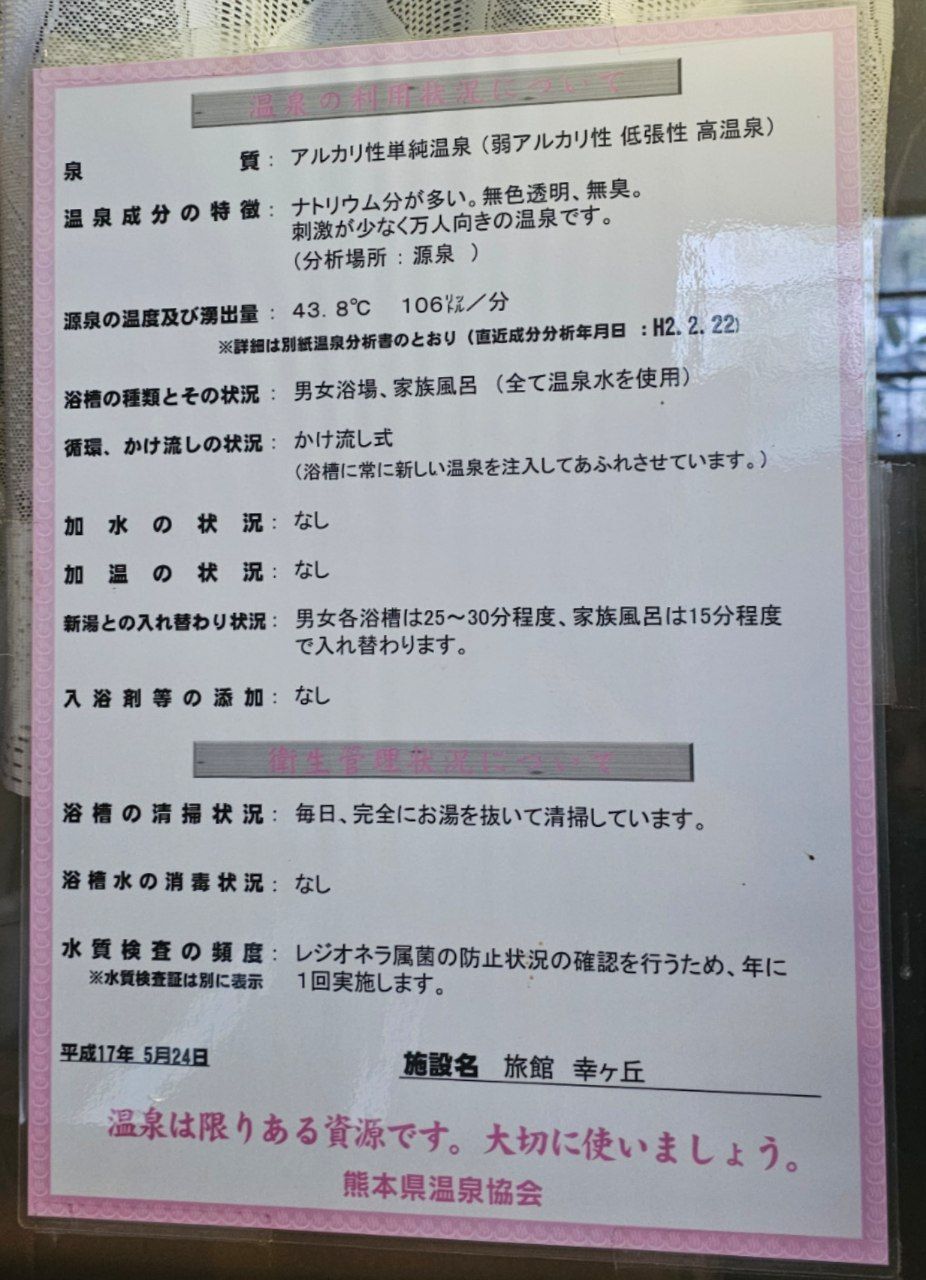 温泉の利用状況について
泉質： アルカリ性単純温泉（弱アルカリ性 低張性 高温泉）
温泉成分の特徴： ナトリウム分が多い。無色透明、無臭。
刺激が少なく万人向きの温泉です。
（分析場所：源泉 ）
源泉の温度及び湧出量： 43.8℃ 106㍑／分
※詳細は別紙温泉分析書のとおり（直近成分分析年月日 ：H2.2.22）
浴槽の種類とその状況： 男女浴場、家族風呂 （全て温泉水を使用）
循環、かけ流しの状況： かけ流し式
（浴槽に常に新しい温泉を注入してあふれさせています。）
加水の状況： なし
加温の状況： なし
新湯との入れ替わり状況： 男女各浴槽は25～30分程度、家族風呂は15分程度
で入れ替わります。
入浴剤等の添加： なし
衛生管理状況について
浴槽の清掃状況： 毎日、完全にお湯を抜いて清掃しています。
浴槽水の消毒状況： なし
水質検査の頻度： レジオネラ属菌の防止状況の確認を行うため、年に
※水質検査証は別に表示 1回実施します。
平成17年 5月24日 施設名 旅館 幸ヶ丘
温泉は限りある資源です。大切に使いましょう。
熊本県温泉協会